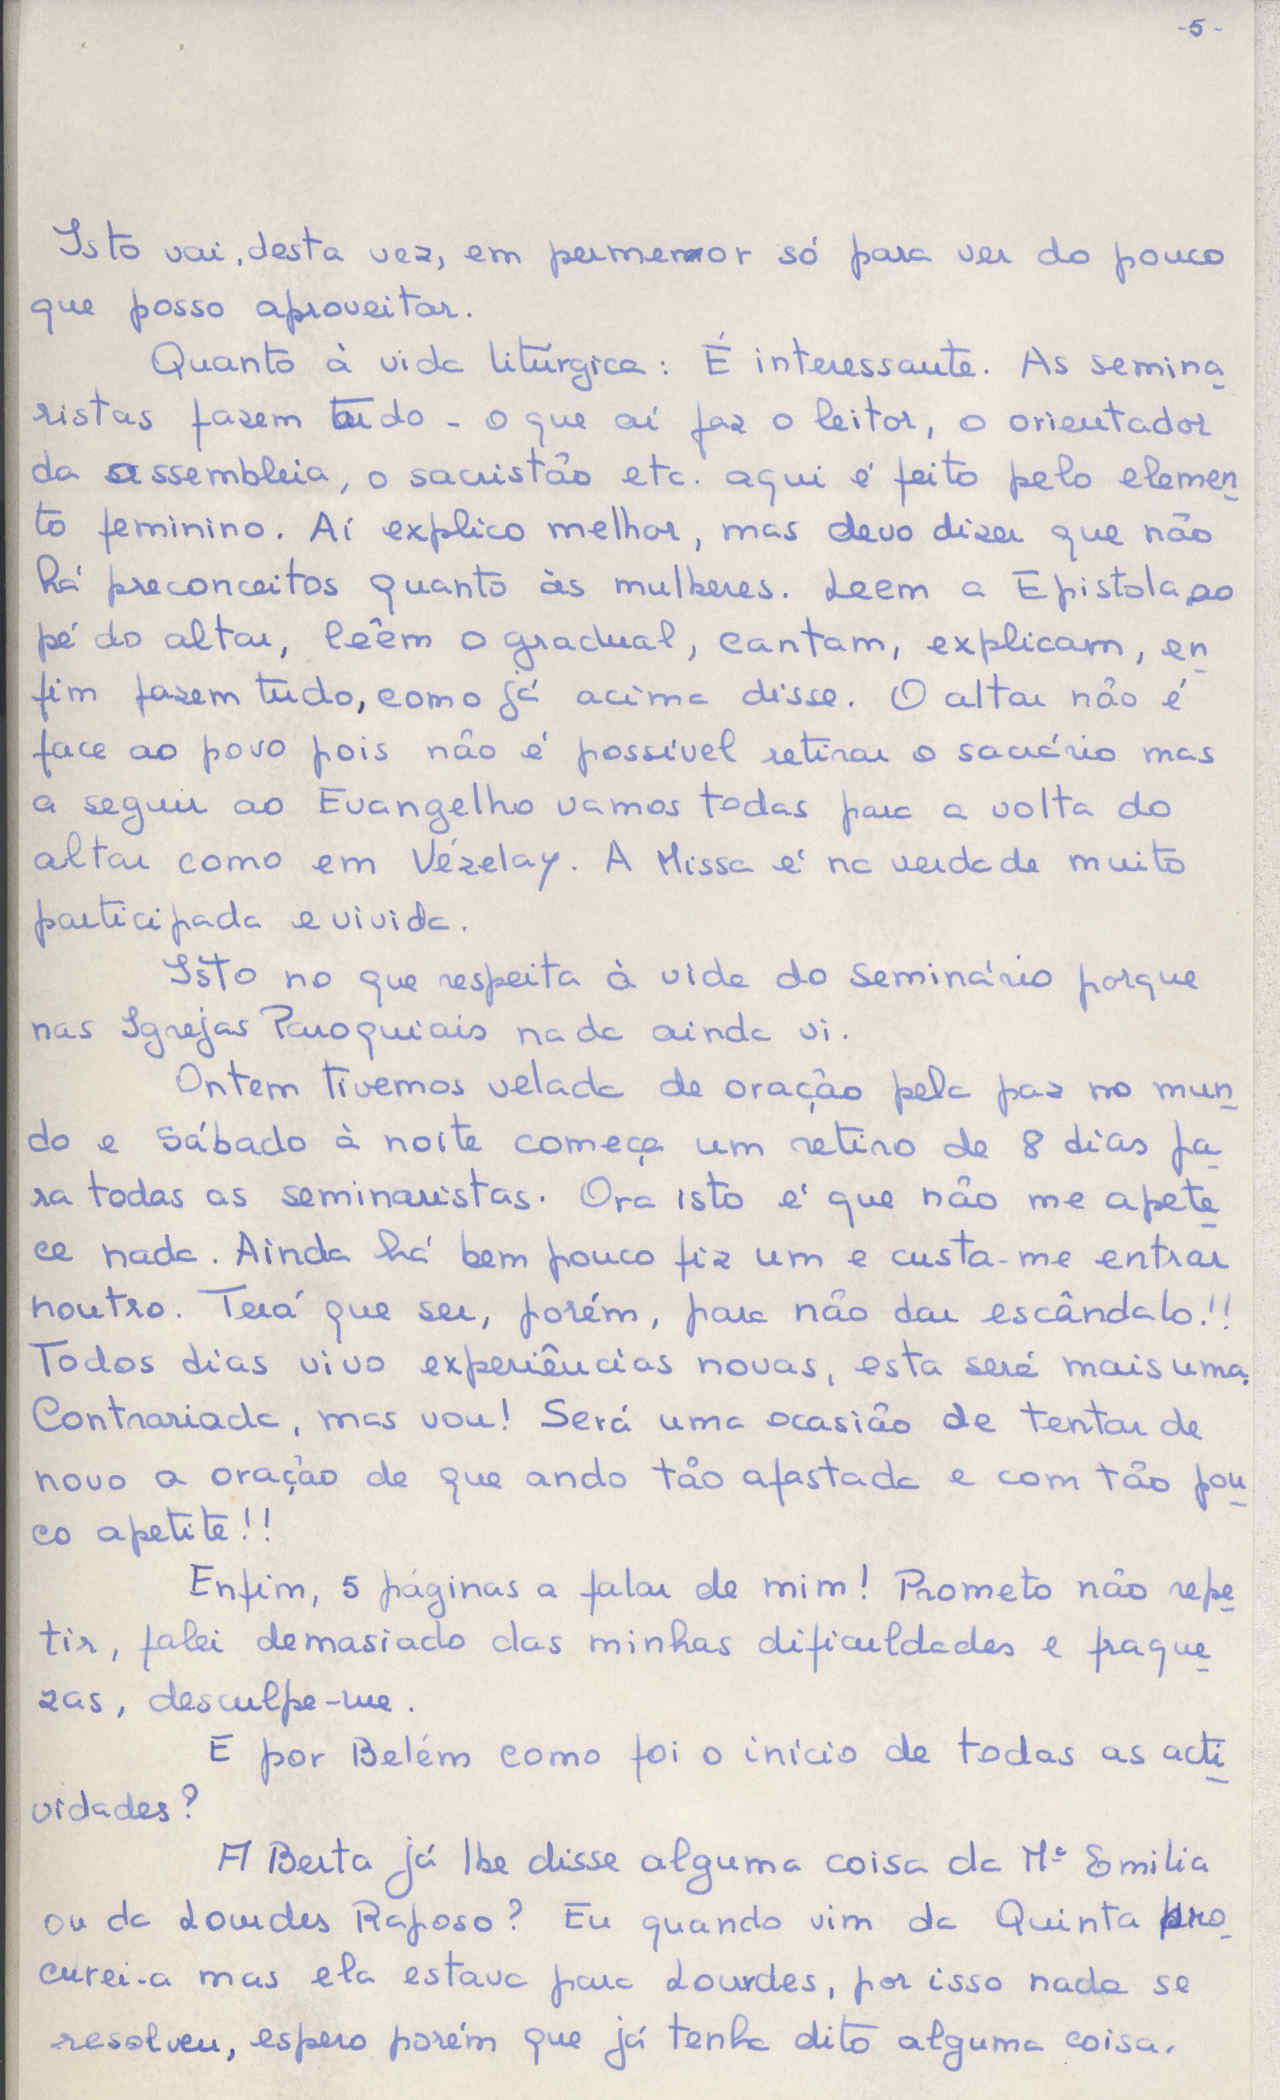 -5-
Isto vai, desta vez, em permenor só para ver do pouco
que posso aproveitar.
Quanto à vida litúrgica: É interessante. As semina
ristas fazem tudo - o que aí faz o leitor, o orientador
da assembleia, o sacristão etc. aqui é feito pelo elemen
to feminino. Aí explico melhor, mas devo dizer que não
há preconceitos quanto às mulheres. Leem a Epistola ao
pé do altar, lêem o gradual, cantam, explicam, en
fim fazem tudo, como já acima disse. O altar não é
face ao povo pois não é possível retirar o sacrário mas
a seguir ao Evangelho vamos todas para a volta do
altar como em Vézelay. A Missa é na verdade muito
participada e vivida.
Isto no que respeita à vida do seminário porque
nas Igrejas Paroquiais nada ainda vi.
Ontem tivemos velada de oração pela paz no mun
do e sábado à noite começa um retiro de 8 dias pa
ra todas as seminaristas. Ora isto é que não me apete
ce nada. Ainda há bem pouco fiz um e custa-me entrar
noutro. Terá que ser, porém, para não dar escândalo!!
Todos dias vivo experiências novas, esta será mais uma.
Contrariada, mas vou! Será uma ocasião de tentar de
novo a oração de que ando tão afastada e com tão pou
co apetite!!
Enfim, 5 páginas a falar de mim! Prometo não repe
tir, falei demasiado das minhas dificuldades e fraque
zas, desculpe-me.
E por Belém como foi o início de todas as acti
vidades?
A Berta já lhe disse alguma coisa da Mª Emilia
ou da Lourdes Raposo? Eu quando vim da Quinta pro
curei-a mas ela estava para Lourdes, por isso nada se
resolveu, espero porém que já tenha dito alguma coisa.